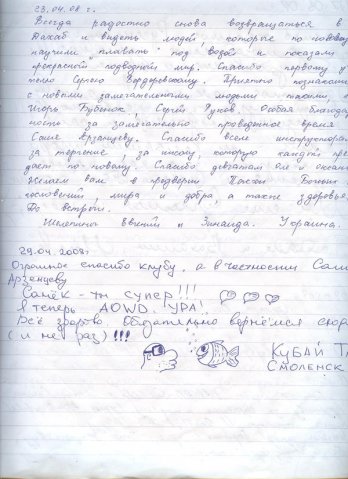 23.04.08 г.
Всегда радостно снова возвращаться в
Дахаб и видеть людей, которые по-новому
научили "плавать" под водой и показали
прекрасный подводный мир. Спасибо первому у
телю Сергею Бордаровскому. Приятно познаком
с новыми замечательными людьми такими
Игорь Бубенок, Сергей Жуков. Особая благодар
ность за замечательно проведенное время
Саше Арзанцеву. Спасибо всем инструкторам
за терпение, за школу, которую каждый пре
дает по-новому. Спасибо девчатам Оле и Оксане
Желаем вам в преддверии Пасхи Божьих
гословений, мира и добра, а также здоровья
До встречи.
Евгений и Зинаида. Украина.
29.04.2008г.
Огромное спасибо клубу, а в частности Саше
Арзенцеву
Санёк - ты супер!!!
Я теперь AOWD. УРА!
Всё здорово. Обязательно вернёмся сюда
(и не раз)!!!
Кубай Т
Смоленск